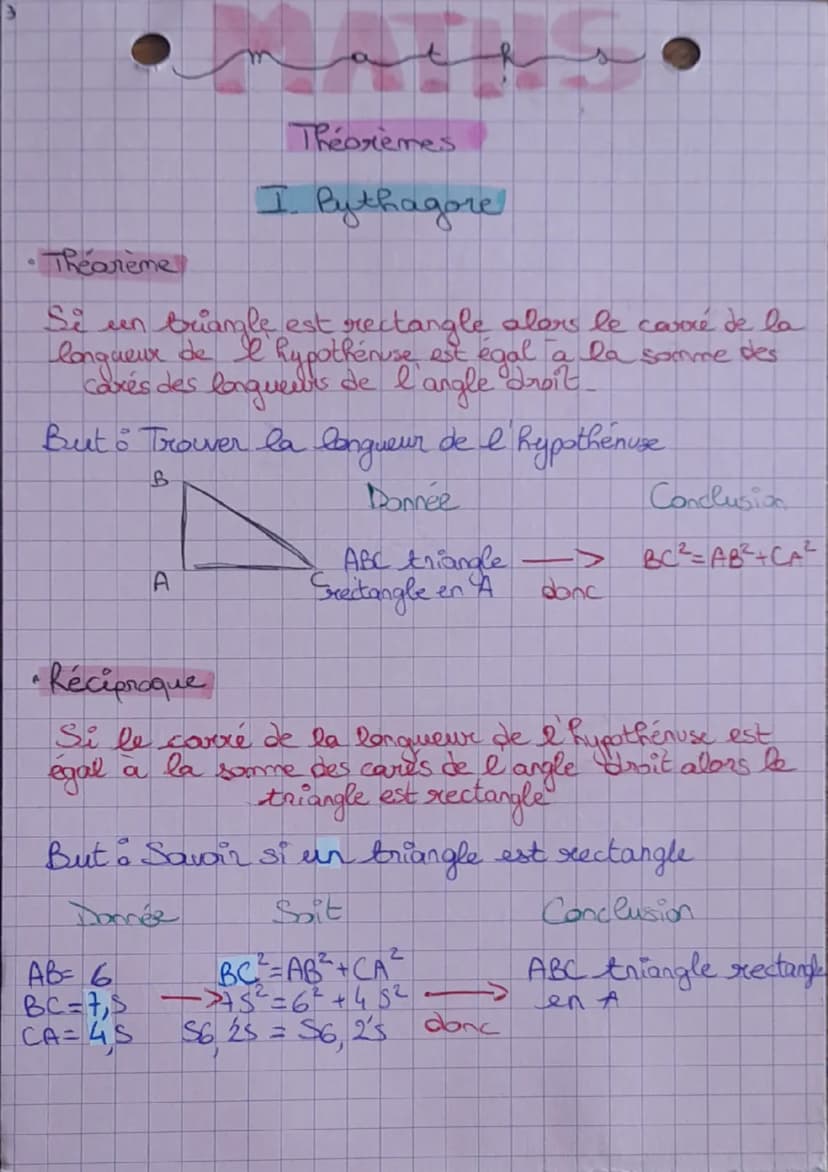 3
MATHS
maths
Théorèmes
I. Pythagore
• Théorème
Si un triangle est rectangle alors le carré de la
longueur de l'hypothénuse est égal à la somme des
carés des longueurs de l'angle droit.
But : Trouver la longueur de l'hypothénuse
B
Donnée Conclusion
ABC triangle → BC²=AB²+CA²
A C rectangle en A donc
• Réciproque
Si le carré de la longueur de l'hypothénuse est
égal à la somme des carés de l'angle droit alors le
triangle est rectangle
But : Savoir si un triangle est rectangle
Donnée Soit Conclusion
AB= 6 BC²=AB²+CA² ABC triangle rectangle
BC=7,5 → 75²=6²+4 5² → en A
CA=4,5 56,25 = 56,25 donc